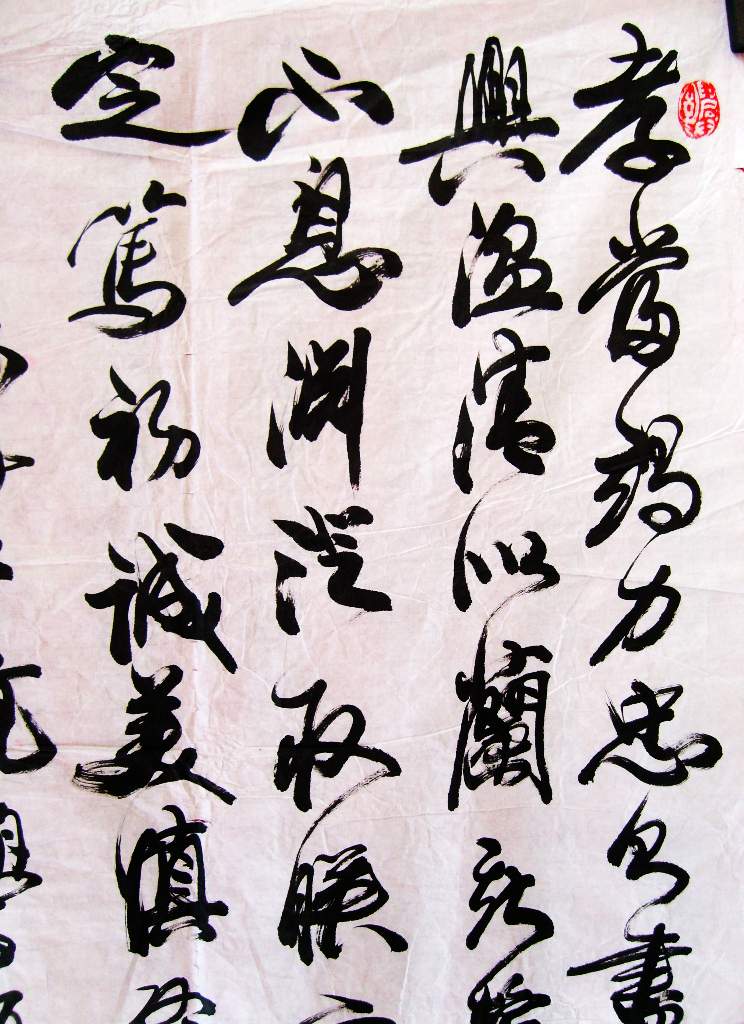 孝當竭力忠則盡
興溫清似蘭斯
不息淵澄取暎
定篤初誠美慎